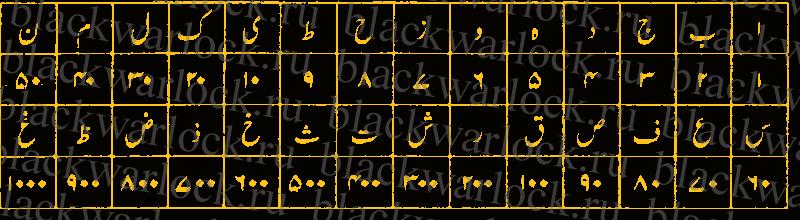 ا ب ج د ه و ز ح ط ی ک ل م ن
۱ ۲ ۳ ۴ ۵ ۶ ۷ ۸ ۹ ۱۰ ۲۰ ۳۰ ۴۰ ۵۰
س ع ف ص ق ر ش ت ث خ ذ ض ظ غ
۶۰ ۷۰ ۸۰ ۹۰ ۱۰۰ ۲۰۰ ۳۰۰ ۴۰۰ ۵۰۰ ۶۰۰ ۷۰۰ ۸۰۰ ۹۰۰ ۱۰۰۰
blackwarlock.ru